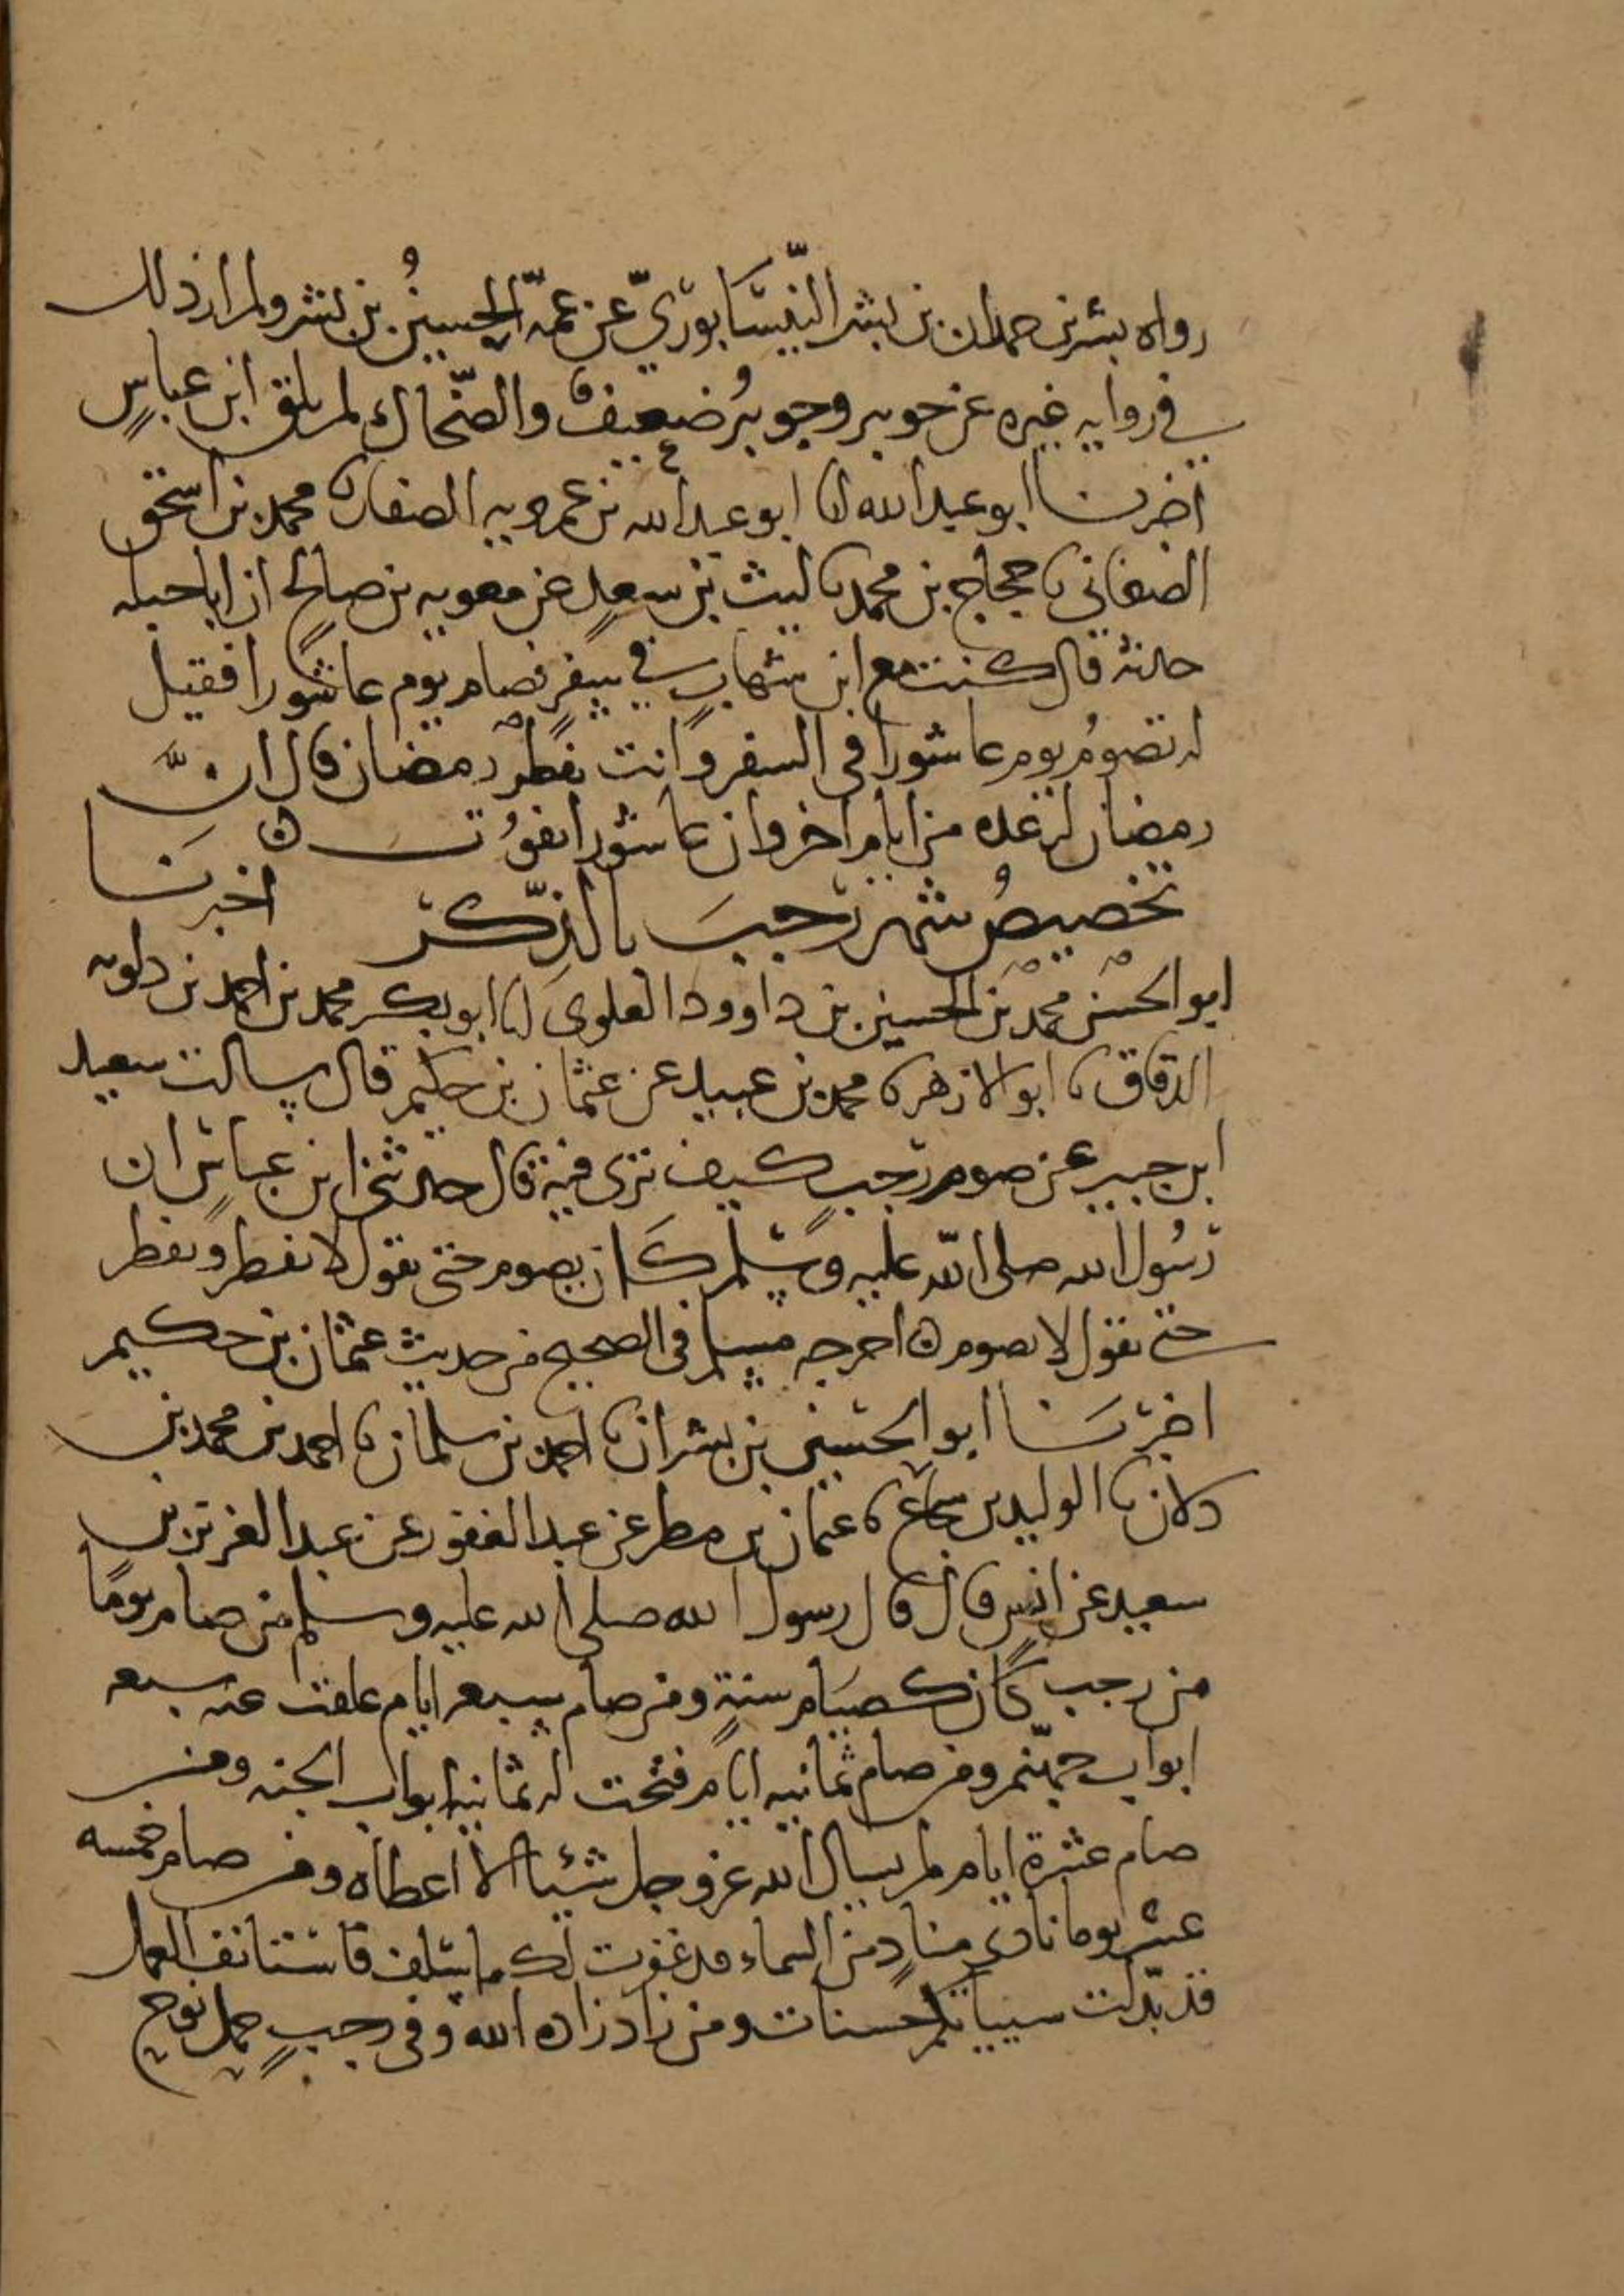 رواه بشر بن حمدان بن بشر النيسابوري عن عمه الحسين بن بشر ولم ار ذلك
في روايه غيره عن جويبر وجويبر ضعيف والضحاك لم يلق ابن عباس
اخبرنا ابو عبد الله انا ابو عبد الله بن عمرويه الصفار نا محمد بن اسحق
الصغاني نا حجاج بن محمد نا ليث بن سعد عن معويه بن صالح ان ابا جبله
حدثه قال كنت مع ابن شهاب في سفر فصام يوم عاشورا فقيل
له تصوم يوم عاشورا في السفر وانت تفطر رمضان قال ان
رمضان له عده من ايام اخر وان عاشورا تفوت
تخصيص شهر رجب بالذكر اخبرنا
ابو الحسن محمد بن الحسين بن داوود العلوي انا ابو بكر محمد بن احمد بن دلويه
الدقاق نا ابو الازهر نا محمد بن عبيد عن عثمان بن حكيم قال سالت سعيد
ابن جبير عن صوم رجب كيف ترى فيه قال حدثني ابن عباس ان
رسول الله صلى الله عليه وسلم كان يصوم حتى نقول لا يفطر ويفطر
حتى نقول لا يصوم اخرجه مسلم في الصحيح من حديث عثمان بن حكيم
اخبرنا ابو الحسين بن بشران نا احمد بن سلمان نا احمد بن محمد بن
دلان نا الوليد بن شجاع نا عثمان بن مطر عن عبد الغفور عن عبد العزيز بن
سعيد عن انس قال قال رسول الله صلى الله عليه وسلم من صام يوما
من رجب كان كصيام سنة ومن صام سبعه ايام غلقت عنه سبعه
ابواب جهنم ومن صام ثمانيه ايام فتحت له ثمانيه ابواب الجنه ومن
صام عشرة ايام لم يسال الله عز وجل شيئا الا اعطاه ومن صام خمسه
عشر يوما نادى مناد من السماء قد غفرت لك ما سلف فاستانف العمل
قد بدلت سيياتكم حسنات ومن زاد زاده الله وفي رجب حمل نوح